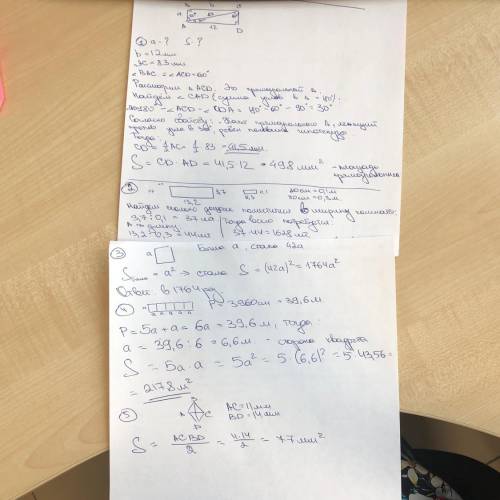 B b C
a
A 12 D
① a-? S-?
b = 12 мм
AC = 83 мм
∠BAC = ∠ACD = 60°
Рассмотрим △ ACD. Это прямоугольный △.
Найдём ∠CAD (сумма углов в △
- ∠ACD - ∠CDA = - 60° - 90° = 30°
Согласно
угла в 30°, равен половине гипотенузы
Тогда
CD = ½ AC = ½ · 83 = 41,5 мм
S = CD · AD = 41,5 · 12 = 498 мм² - площадь
②
3,7 0,1
13,2 0,3
10 см = 0,1 м
30 см = 0,3 м
Найдём сколько дощечек поместится в ширину комнаты:
3,7 : 0,1 = 37
Тогда всего потребуется
в длину:
13,2 : 0,3 = 44
37 · 44 = 1628
③ a
Было a, стало 42a
S было = a² → стало S = (42a)² = 1764a²
Ответ: в 1764 раз
④ P = 3960 см = 39,6 м
a a a a a
P = 5a + a = 6a = 39,6 м, тогда:
a = 39,6 : 6 = 6,6 м - сторона квадрата
S = 5a · a = 5a² = 5 · (6,6)² = 5 · 43,56 =
= 217,8 м²
⑤
A C
D
AC = 11 мм
BD = 14 мм
S = AC·BD / 2 = 11·14 / 2 = 77 мм²